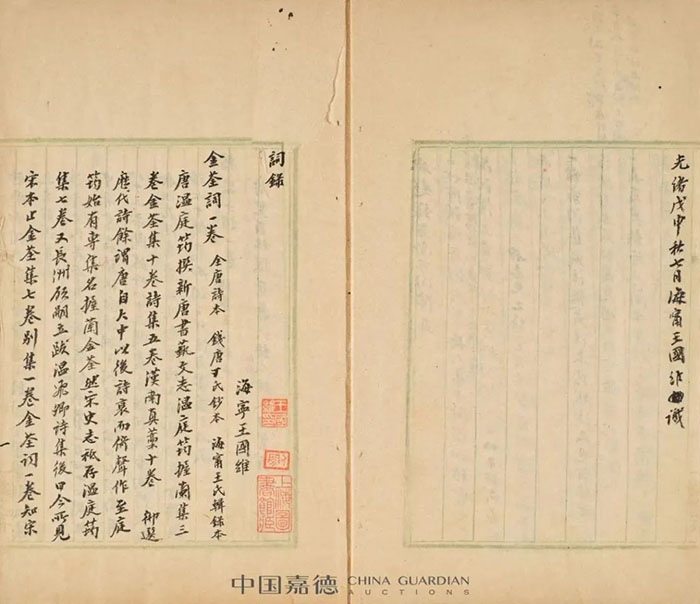 光緒戊申秋七月海甯王國維識
詞錄
海寧王國維
上海圖書館藏
金荃詞一卷 全唐詩本 錢唐丁氏鈔本 海甯王氏輯錄本
唐溫庭筠撰新唐書藝文志溫庭筠握蘭集三
卷金荃集十卷詩集五卷漢南真藁十卷 御選
歷代詩餘謂唐自大中以後詩衰而倚聲作至庭
筠始有專集名握蘭金荃然宋史志祗存溫庭筠
集七卷又長洲顧嗣立跋溫飛卿詩集後曰今所見
宋本止金荃集七卷別集一卷金荃詞一卷知宋
中国嘉德 CHINA GUARDIAN
AUCTIONS